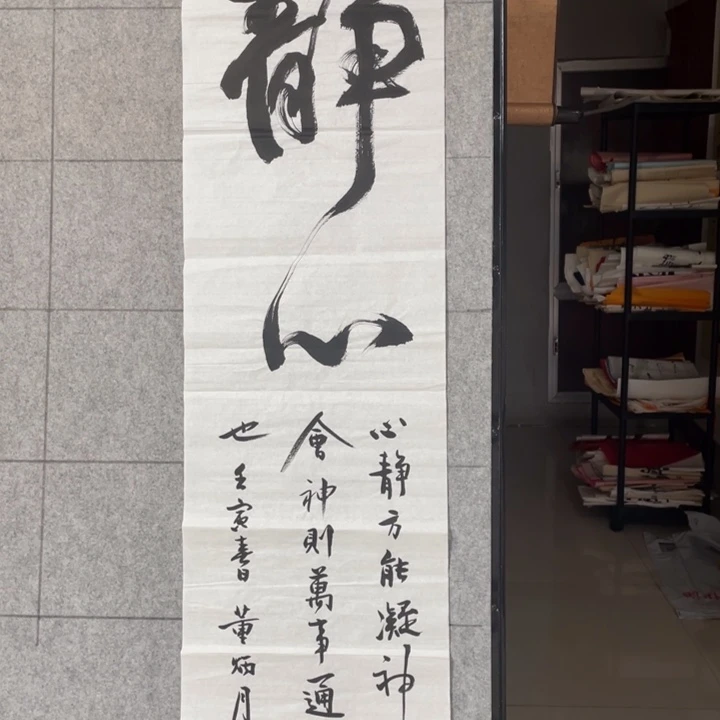 静心
心静方能凝神
會神則萬事通
也壬寅春董炳月